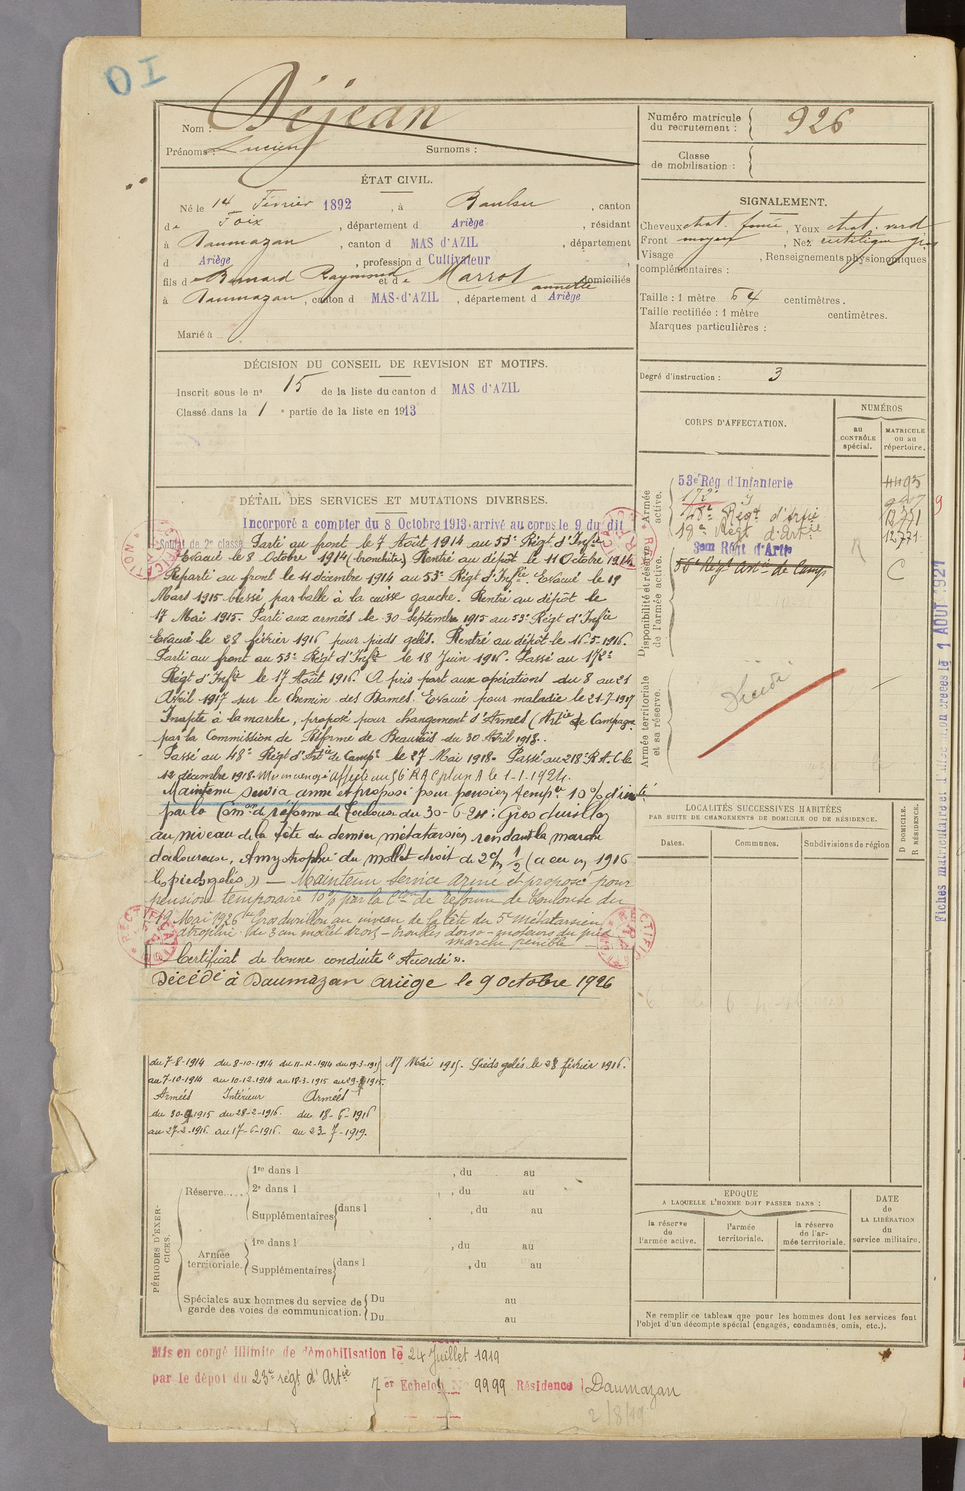 OI
Nom : Déjean
Prénoms : Lucien Surnoms :
Numéro matricule
du recrutement : 926
Classe
de mobilisation :
ÉTAT CIVIL.
Né le 14 Février 1892, à Baulou, canton
de Foix, département d Ariège, résidant
à Daumazan, canton d MAS d'AZIL, département
d Ariège, profession d Cultivateur
fils de Bernard Raymond et de Marrot annette domiciliés
à Daumazan, canton d MAS-d'AZIL, département d Ariège
Marié à
SIGNALEMENT.
Cheveux chat. foncé, Yeux chat. verd
Front moyen, Nez rectiligne gros
Visage , Renseignements physionomiques
complémentaires :
Taille : 1 mètre 64 centimètres.
Taille rectifiée : 1 mètre centimètres.
Marques particulières :
Degré d'instruction : 3
DÉCISION DU CONSEIL DE REVISION ET MOTIFS.
Inscrit sous le n° 15 de la liste du canton d MAS d'AZIL
Classé dans la 1e partie de la liste en 1913
CORPS D'AFFECTATION.
NUMÉROS
au
CONTRÔLE
spécial.
MATRICULE
ou au
répertoire.
Armée
active.
53e Rég d'Infanterie
172e
48e Régt d'Artie
18e Régt d'Artie
3em Régt d'Artie
56e Régt art. de Camp
4495
12.771
12.771
R
C
Disponibilité et réserve
de l'armée active.
Armée territoriale
et sa réserve.
Décédé
DÉTAIL DES SERVICES ET MUTATIONS DIVERSES.
Incorporé a compter du 8 Octobre 1913 arrivé au corps le 9 du dit
Soldat de 2e classe Parti au front le 7 Août 1914 au 53e Régt d'Infie
Evacué le 8 Octobre 1914 (bronchite) Rentré au dépôt le 11 Octobre 1914
Reparti au front le 11 décembre 1914 au 53e Régt d'Infie. Evacué le 19
Mars 1915 blessé par balle à la cuisse gauche. Rentré au dépôt le
17 Mai 1915. Parti aux armées le 30 Septembre 1915 au 53e Régt d'Infie
Evacué le 28 février 1916 pour pieds gelés. Rentré au dépôt le 16.5.1916.
Parti au front au 53e Régt d'Infie le 18 Juin 1916. Passé au 172e
Régt d'Infie le 17 Août 1916. A pris part aux opérations du 8 au 21
Avril 1917 sur le Chemin des Dames. Evacué pour maladie le 21-7-1917
Inapte à la marche, proposé pour changement d'Armes (Artie de Campagne
par la Commission de Réforme de Beauvais du 30 Avril 1918.
Passé au 48e Régt d'Artie de Campe le 27 Mai 1918. Passé au 218e R.A.C le
12 décembre 1918. Affecté au 56e RAC plan A le 1-1-1924.
Maintenu service armé et proposé pour pension tempre 10% d'invté
par la Comon de réforme de Toulouse du 30-6-24: Gros durillon
au niveau de la tête du dernier métatarsien rendant la marche
douloureuse, Amyotrophie du mollet droit de 2c/m 1/2 (a eu en 1916
les pieds gelés)) — Maintenu service armé et proposé pour
pension temporaire 10% par la Con de réforme de Toulouse du
19 Mai 1926 Gros durillon au niveau de la tête du 5e métatarsien
atrophie de 3 cm mollet droit - troubles dorso-moteurs du pied
marche pénible
Certificat de bonne conduite "Accordé".
Décédé à Daumazan Ariège le 9 octobre 1926
RECTIFICATION
Fiches matriculaire et 1 AOUT 1921
9
LOCALITÉS SUCCESSIVES HABITÉES
PAR SUITE DE CHANGEMENTS DE DOMICILE OU DE RÉSIDENCE.
Dates. Communes. Subdivisions de région
D DOMICILE.
R RÉSIDENCE.
du 7-8-1914 du 8-10-1914 du 11-12-1914 du 19-3-1915 17 Mai 1915. Pieds gelés le 28 février 1916.
au 7-10-1914 au 10-12-1914 au 18-3-1915 au 29-9-1915
Armées Intérieur Armées
du 30-9-1915 du 28-2-1916. du 18-6-1916
au 27-2-1916. au 17-6-1916. au 23-7-1919.
PÉRIODES D'EXERCICES.
Réserve.....
1re dans l , du au
2e dans l , du au
Supplémentaires dans l , du au
Armée
territoriale.
1re dans l , du au
Supplémentaires dans l , du au
Spéciales aux hommes du service de
garde des voies de communication.
Du au
Du au
EPOQUE
A LAQUELLE L'HOMME DOIT PASSER DANS :
la réserve
de
l'armée active.
l'armée
territoriale.
la réserve
de l'ar-
mée territoriale.
DATE
de
LA LIBÉRATION
du
service militaire.
Ne remplir ce tableau que pour les hommes dont les services font
l'objet d'un décompte spécial (engagés, condamnés, omis, etc.).
Mis en congé illimité de démobilisation le 24 Juillet 1919
par le dépôt du 23e régt d'Artie
7er Echelon N° 9999 Résidence Daumazan
2/8/19